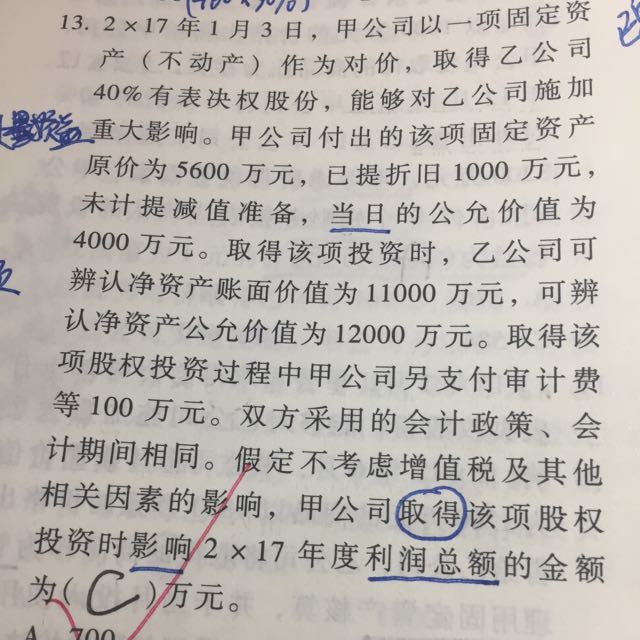 (400×30%)
13. 2×17年1月3日，甲公司以一项固定资
产（不动产）作为对价，取得乙公司
40%有表决权股份，能够对乙公司施加
重大影响。甲公司付出的该项固定资产
原价为5600万元，已提折旧1000万元，
未计提减值准备，当日的公允价值为
4000万元。取得该项投资时，乙公司可
辨认净资产账面价值为11000万元，可辨
认净资产公允价值为12000万元。取得该
项股权投资过程中甲公司另支付审计费
等100万元。双方采用的会计政策、会
计期间相同。假定不考虑增值税及其他
相关因素的影响，甲公司取得该项股权
投资时影响2×17年度利润总额的金额
为( C )万元。
A. 700